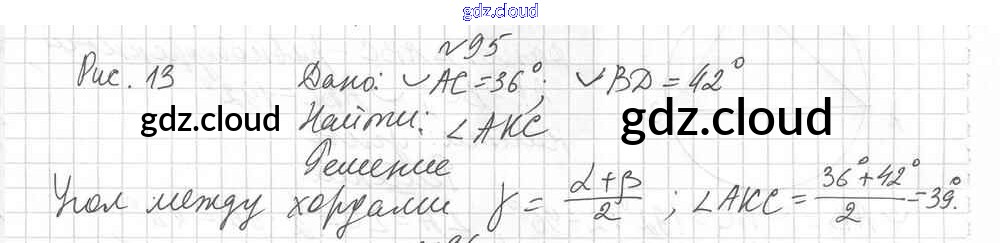 gdz.cloud
№95
Рис. 13 Дано: ◡AC = 36°; ◡BD = 42°
gdz.cloud Найти: ∠AKC gdz.cloud
Решение
Угол между хордами γ = (α+β)/2 ; ∠AKC = (36°+42°)/2 = 39°.